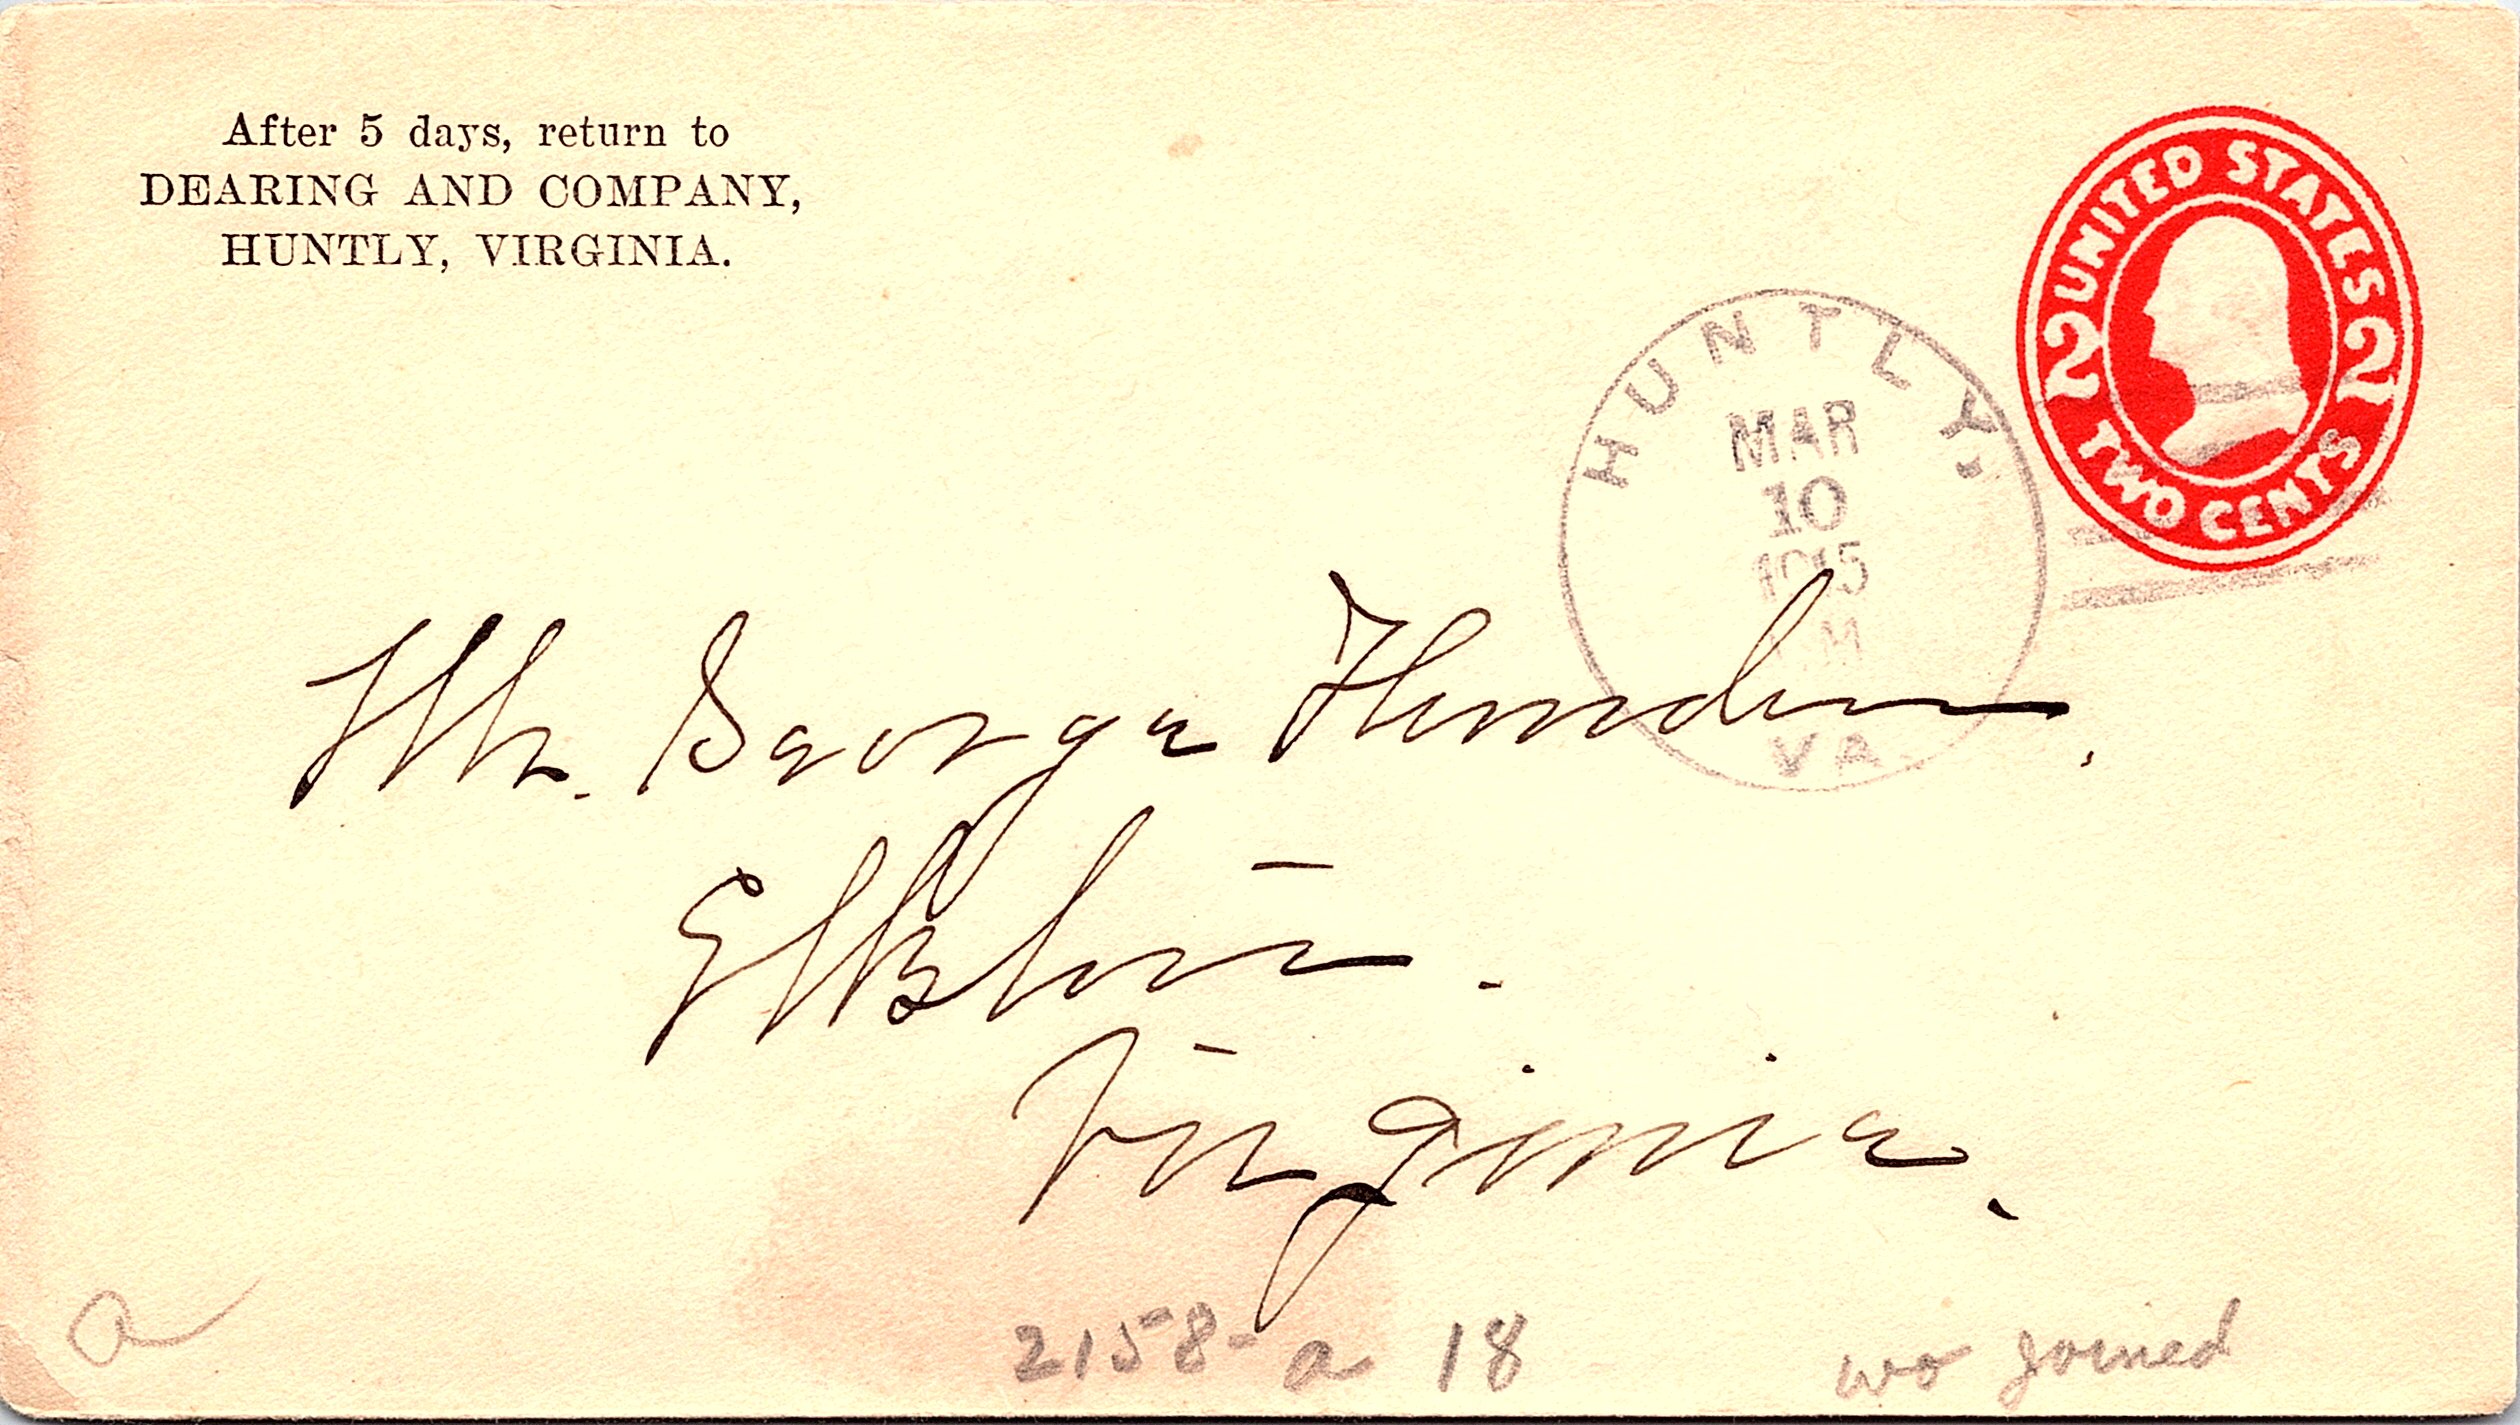 After 5 days, return to
DEARING AND COMPANY,
HUNTLY, VIRGINIA.
UNITED STATES
2 2
TWO CENTS
HUNTLY,
MAR
10
1915
M
VA
Mr. George
Virginia.
a
2158-a 18 wo joined